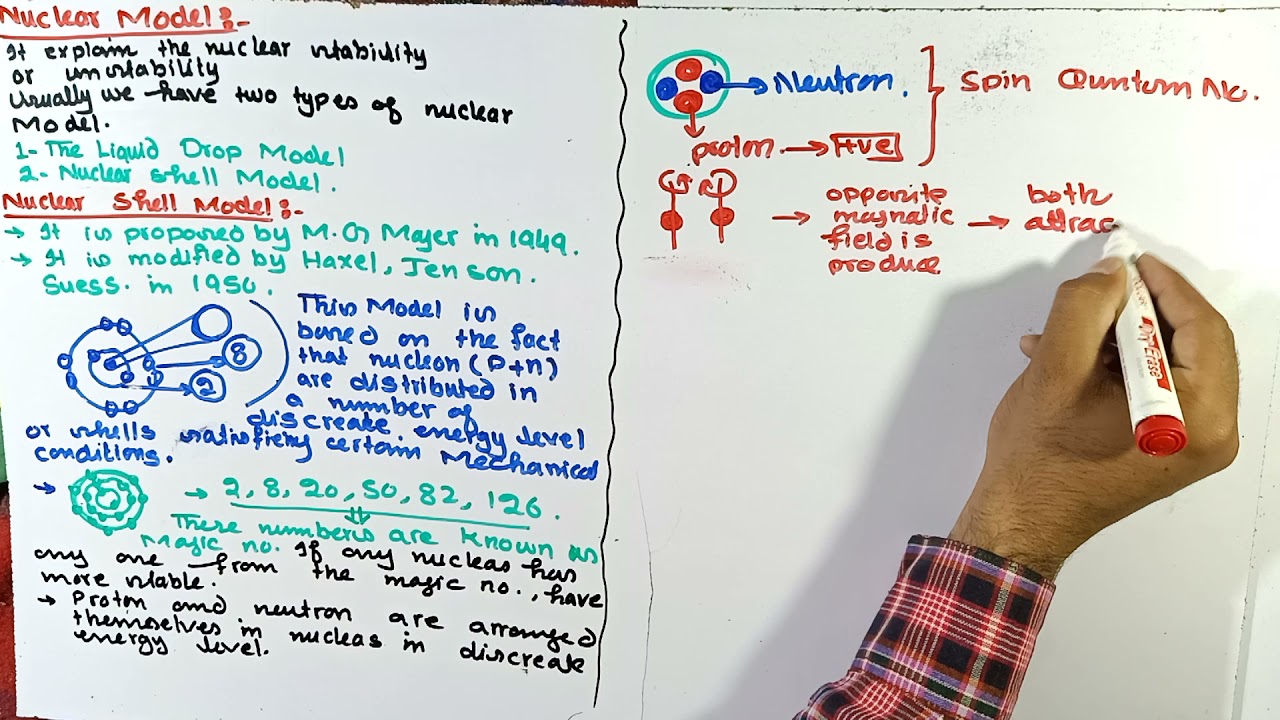 Nuclear Model:-
It explain the nuclear stability
or unstability
Usually we have two types of nuclear
Model.
1- The Liquid Drop Model
2- Nuclear shell Model.
Nuclear Shell Model:-
→ It is proposed by M.G Mayer in 1949.
→ It is modified by Haxel, Jenson.
Suess. in 1950.
8
2
This Model is
based on the fact
that nucleon (P+n)
are distributed in
a number of
discreate energy level
or shells satisfieng certain Mechanical
conditions.
→ 2, 8, 20, 50, 82, 126.
These numbers are known as
Magic no. If any nucleas has
any one from the magic no., have
more stable.
→ Proton and neutron are arranged
themselves in nucleas in discreate
energy level.
→ Neutron.
proton. → +ve
Spin Quntom No.
→ opposite
magnatic
field is
produce
→ both
attrac
Dry-Erase